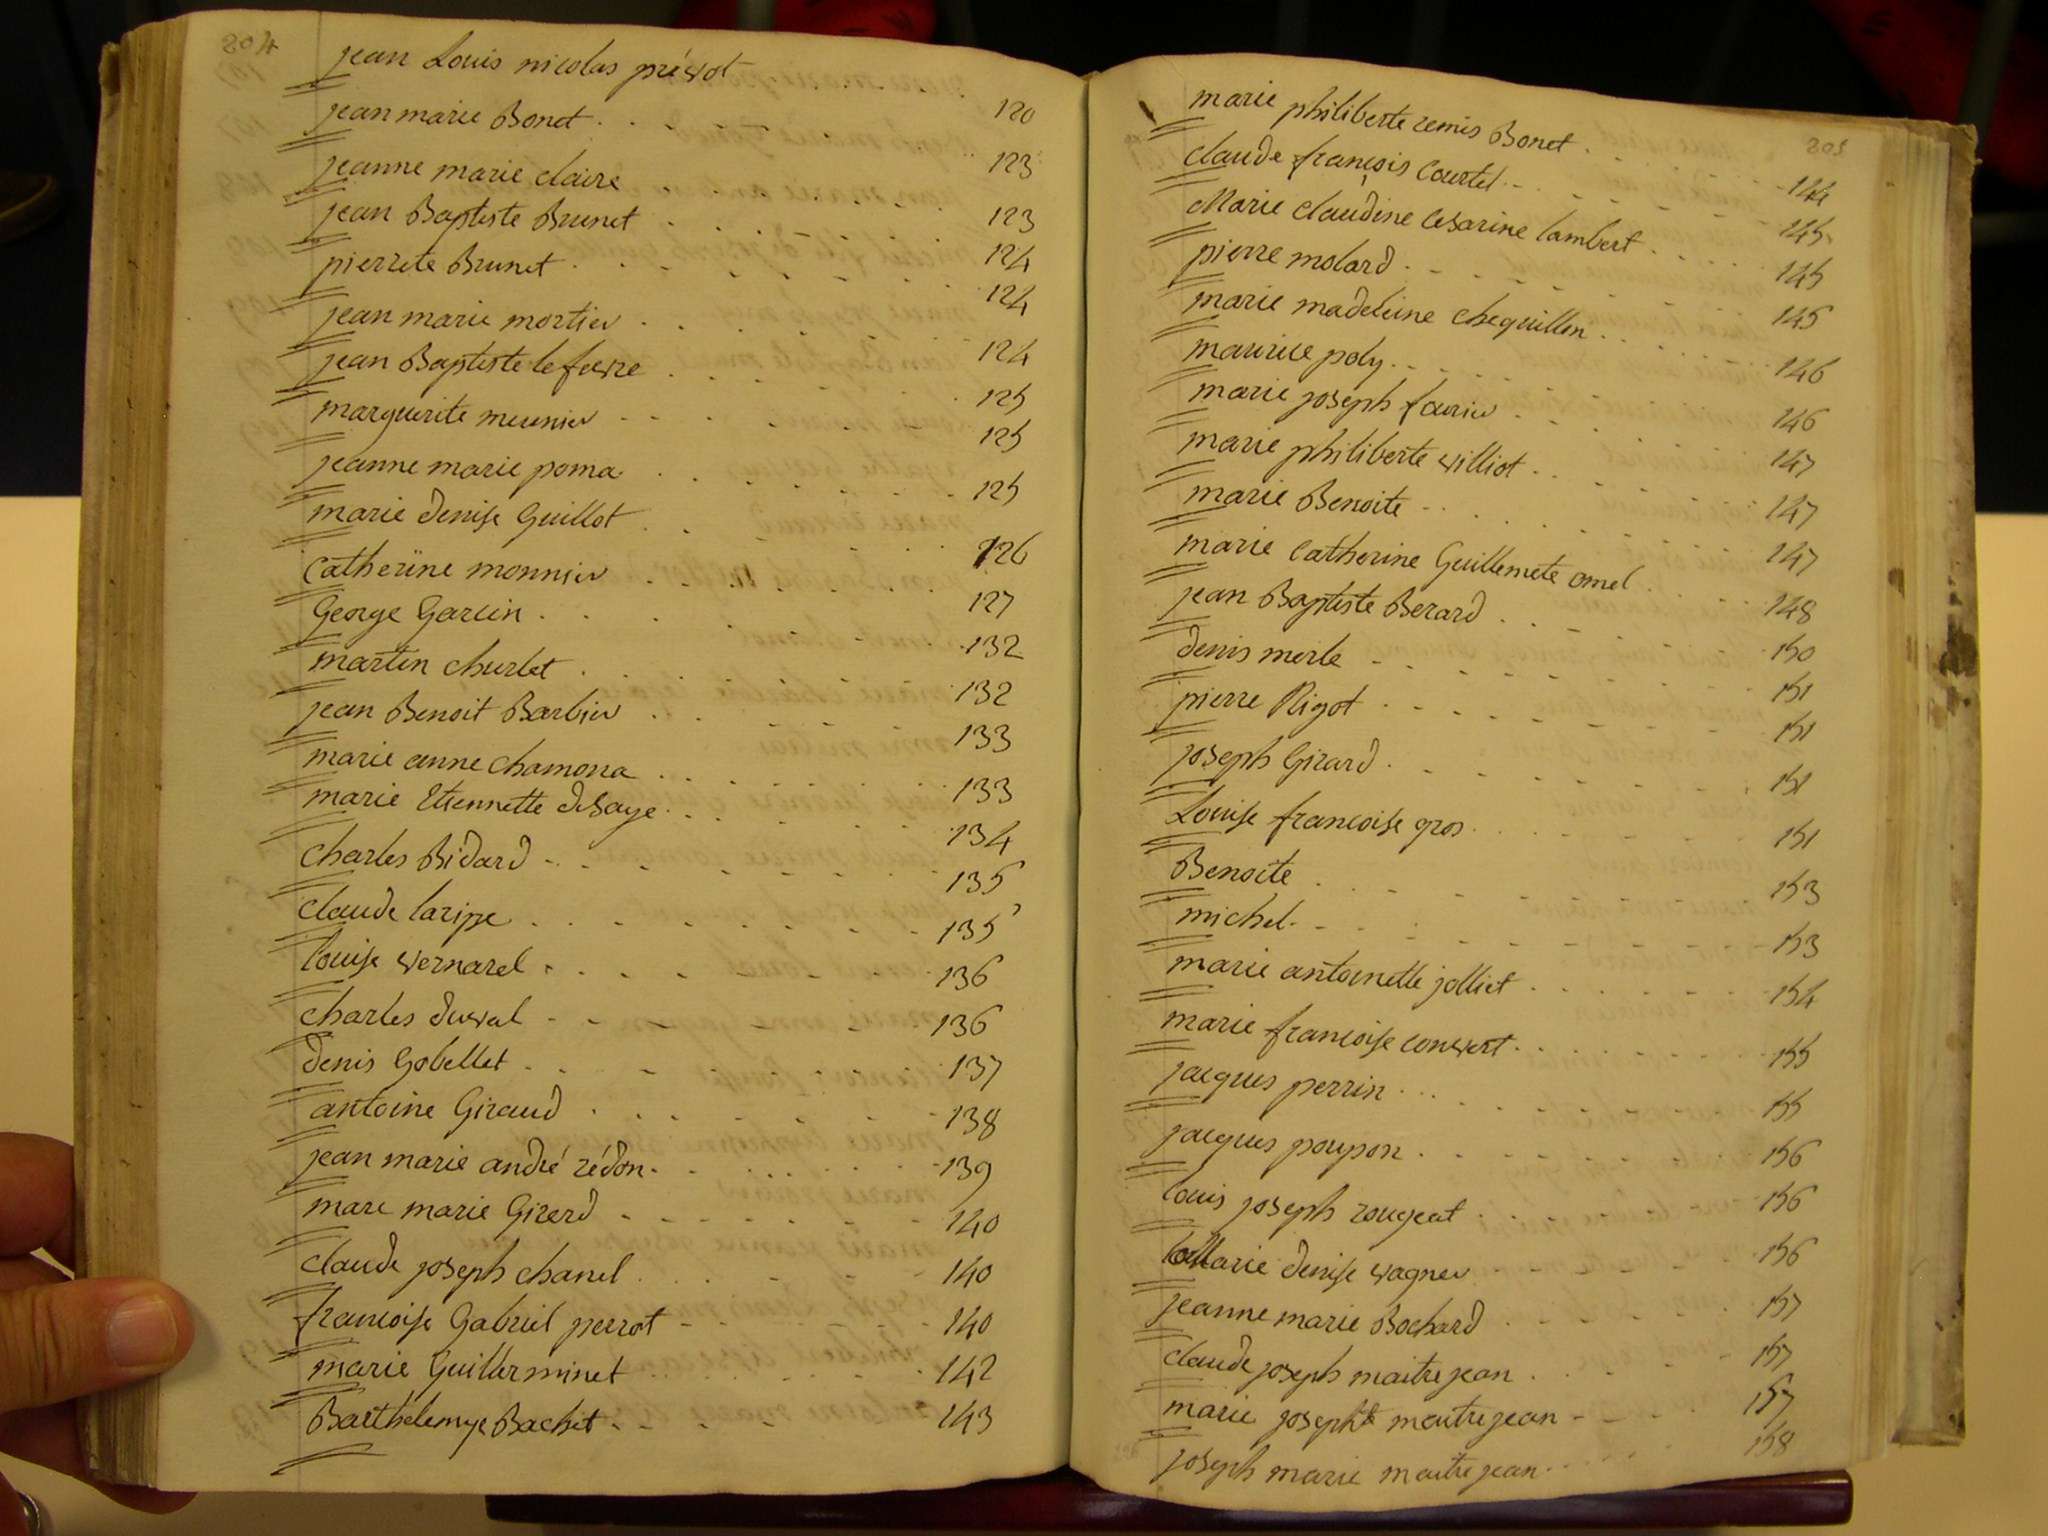 204
jean Louis nicolas prévot
jean marie Bonet 120
jeanne marie claire 123
jean Baptiste Brunet 123
pierrete Brunet 124
jean marie mortier 124
jean Baptiste lefevre 124
marguerite meunier 125
jeanne marie poma 125
marie denise Guillot 125
catherine monnier 126
George Garcin 127
martin churlet 132
jean Benoit Barbier 132
marie anne chamona 133
marie Etiennette desaye 133
charles Bidard 134
claude laripe 135
louise vernarel 135
charles duval 136
denis Gobellet 136
antoine Giraud 137
jean marie andré rédon 138
marc marie Girerd 139
claude joseph chanel 140
francoise Gabriel perrot 140
marie Guillerminet 140
Barthélemye Bachet 142
143
205
marie philiberte remis Bonet
claude françois Courtel 144
Marie claudine Cesarine lambert 145
pierre molard 145
marie madeleine chequillen 145
maurice poly 146
marie joseph favrier 146
marie philiberte villiot 147
marie Benoite 147
marie Catherine Guillemete omel 147
jean Baptiste Berard 148
denis merle 150
pierre Rigot 151
joseph Girard 151
Louise francoise gros 151
Benoite 151
michel 153
marie antoinette jolliet 153
marie francoise convert 154
jacques perrin 155
jacques poupon 155
louis joseph rougeat 156
Marie denise vagner 156
jeanne marie Bochard 156
claude joseph maitrejean 157
marie josephte maitrejean 157
joseph marie maitrejean 157
158